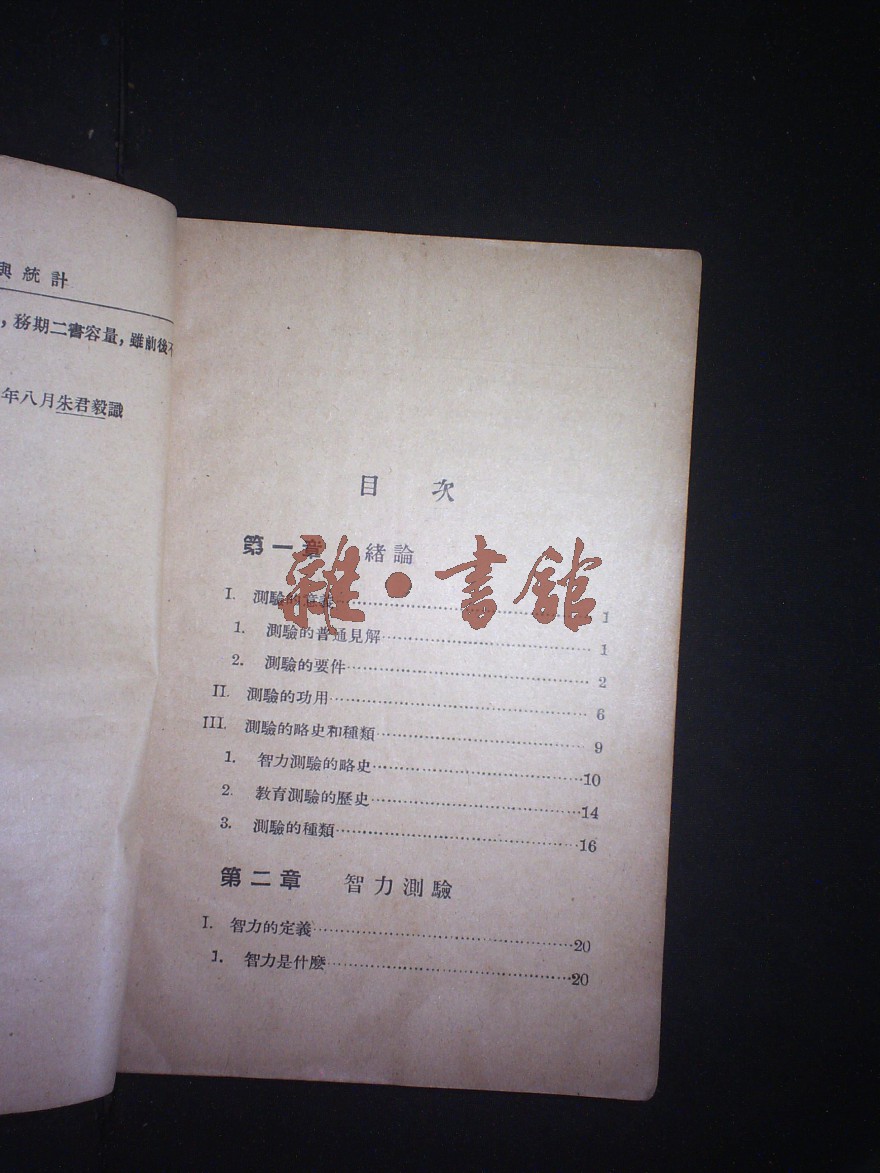 與統計
，務期二書容量，雖前後不
年八月朱君毅識
目 次
第一章 緒論
I. 測驗的意義……1
1. 測驗的普通見解……1
2. 測驗的要件……2
II. 測驗的功用……6
III. 測驗的略史和種類……9
1. 智力測驗的略史……10
2. 教育測驗的歷史……14
3. 測驗的種類……16
第二章 智力測驗
I. 智力的定義……20
1. 智力是什麼……20
雜·書館